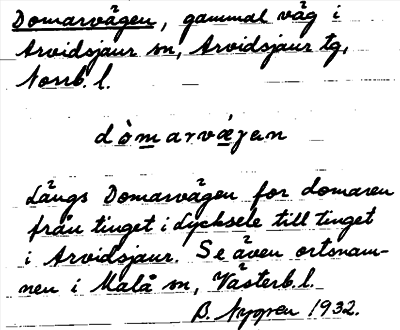 Domarvägen, gammal väg i
Arvidsjaur sn, Arvidsjaur tg,
Norrb. l.
dòmarvægen
Längs Domarvägen for domaren
från tinget i Lycksele till tinget
i Arvidsjaur. Se även ortsnam-
nen i Malå sn, Västerb. l.
B. Nygren 1932.